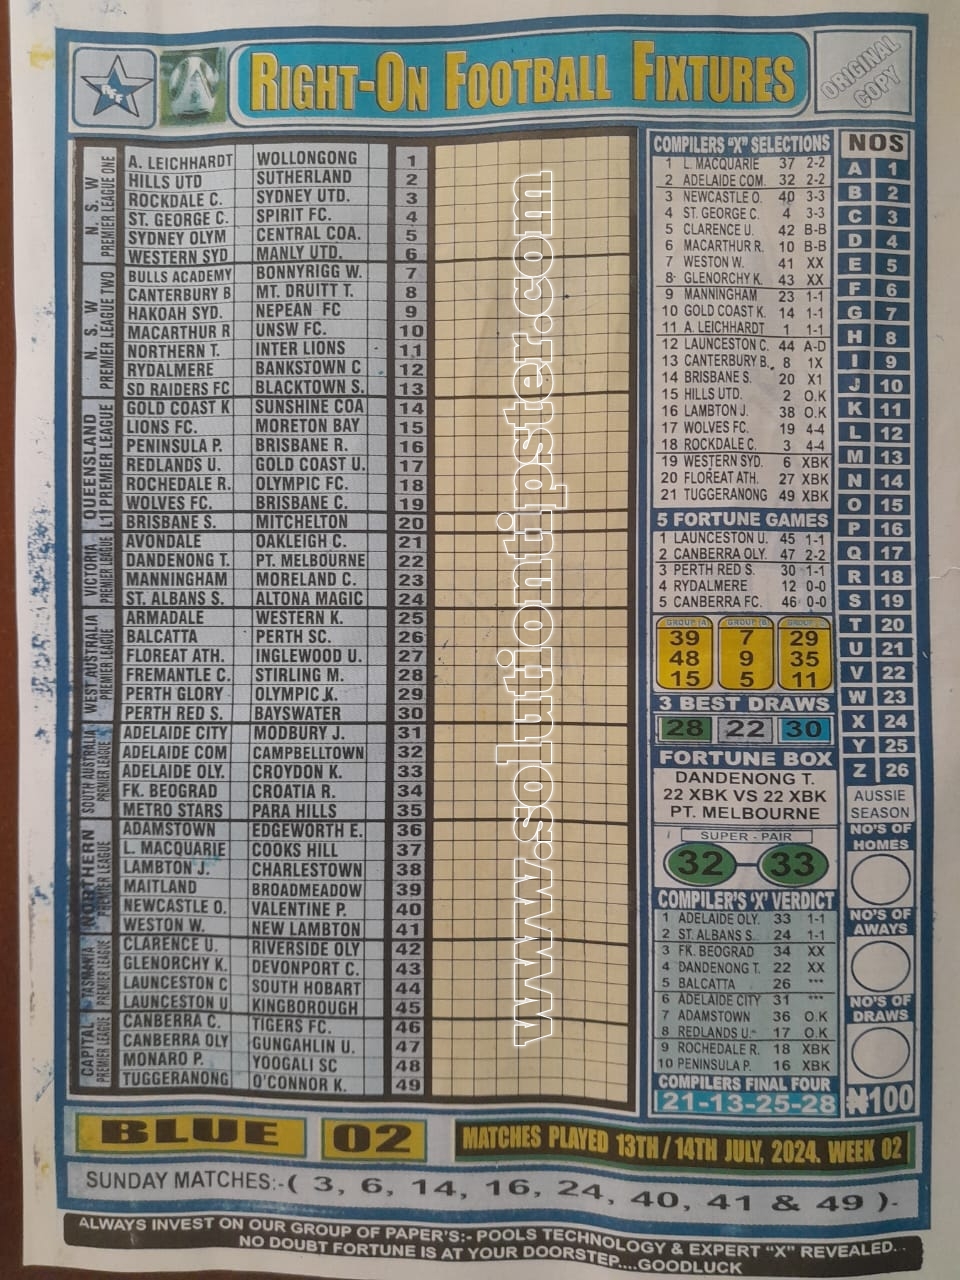 RFF
RIGHT-ON FOOTBALL FIXTURES
ORIGINAL COPY
N. S. W PREMIER LEAGUE ONE
A. LEICHHARDT WOLLONGONG 1
HILLS UTD SUTHERLAND 2
ROCKDALE C. SYDNEY UTD. 3
ST. GEORGE C. SPIRIT FC. 4
SYDNEY OLYM CENTRAL COA. 5
WESTERN SYD MANLY UTD. 6
N. S. W PREMIER LEAGUE TWO
BULLS ACADEMY BONNYRIGG W. 7
CANTERBURY B MT. DRUITT T. 8
HAKOAH SYD. NEPEAN FC 9
MACARTHUR R UNSW FC. 10
NORTHERN T. INTER LIONS 11
RYDALMERE BANKSTOWN C 12
SD RAIDERS FC BLACKTOWN S. 13
QUEENSLAND L1 PREMIER LEAGUE
GOLD COAST K SUNSHINE COA 14
LIONS FC. MORETON BAY 15
PENINSULA P. BRISBANE R. 16
REDLANDS U. GOLD COAST U. 17
ROCHEDALE R. OLYMPIC FC. 18
WOLVES FC. BRISBANE C. 19
BRISBANE S. MITCHELTON 20
VICTORIA PREMIER LEAGUE
AVONDALE OAKLEIGH C. 21
DANDENONG T. PT. MELBOURNE 22
MANNINGHAM MORELAND C. 23
ST. ALBANS S. ALTONA MAGIC 24
WEST AUSTRALIA PREMIER LEAGUE
ARMADALE WESTERN K. 25
BALCATTA PERTH SC. 26
FLOREAT ATH. INGLEWOOD U. 27
FREMANTLE C. STIRLING M. 28
PERTH GLORY OLYMPIC K. 29
PERTH RED S. BAYSWATER 30
SOUTH AUSTRALIA PREMIER LEAGUE
ADELAIDE CITY MODBURY J. 31
ADELAIDE COM CAMPBELLTOWN 32
ADELAIDE OLY. CROYDON K. 33
FK. BEOGRAD CROATIA R. 34
METRO STARS PARA HILLS 35
NORTHERN PREMIER LEAGUE
ADAMSTOWN EDGEWORTH E. 36
L. MACQUARIE COOKS HILL 37
LAMBTON J. CHARLESTOWN 38
MAITLAND BROADMEADOW 39
NEWCASTLE O. VALENTINE P. 40
WESTON W. NEW LAMBTON 41
TASMANIA PREMIER LEAGUE
CLARENCE U. RIVERSIDE OLY 42
GLENORCHY K. DEVONPORT C. 43
LAUNCESTON C SOUTH HOBART 44
LAUNCESTON U KINGBOROUGH 45
CAPITAL PREMIER LEAGUE
CANBERRA C. TIGERS FC. 46
CANBERRA OLY GUNGAHLIN U. 47
MONARO P. YOOGALI SC 48
TUGGERANONG O'CONNOR K. 49
www.solutiontipster.com
COMPILERS "X" SELECTIONS
1 L. MACQUARIE 37 2-2
2 ADELAIDE COM. 32 2-2
3 NEWCASTLE O. 40 3-3
4 ST. GEORGE C. 4 3-3
5 CLARENCE U. 42 B-B
6 MACARTHUR R. 10 B-B
7 WESTON W. 41 XX
8 GLENORCHY K. 43 XX
9 MANNINGHAM 23 1-1
10 GOLD COAST K. 14 1-1
11 A. LEICHHARDT 1 1-1
12 LAUNCESTON C. 44 A-D
13 CANTERBURY B. 8 1X
14 BRISBANE S. 20 X1
15 HILLS UTD. 2 O.K
16 LAMBTON J. 38 O.K
17 WOLVES FC. 19 4-4
18 ROCKDALE C. 3 4-4
19 WESTERN SYD. 6 XBK
20 FLOREAT ATH. 27 XBK
21 TUGGERANONG 49 XBK
5 FORTUNE GAMES
1 LAUNCESTON U. 45 1-1
2 CANBERRA OLY. 47 2-2
3 PERTH RED S. 30 1-1
4 RYDALMERE 12 0-0
5 CANBERRA FC. 46 0-0
GROUP (A) GROUP (B) GROUP (C)
39 7 29
48 9 35
15 5 11
3 BEST DRAWS
28 22 30
FORTUNE BOX
DANDENONG T.
22 XBK VS 22 XBK
PT. MELBOURNE
SUPER - PAIR
32 - 33
COMPILER'S 'X' VERDICT
1 ADELAIDE OLY. 33 1-1
2 ST. ALBANS S. 24 1-1
3 FK. BEOGRAD 34 XX
4 DANDENONG T. 22 XX
5 BALCATTA 26 ***
6 ADELAIDE CITY 31 ***
7 ADAMSTOWN 36 O.K
8 REDLANDS U. 17 O.K
9 ROCHEDALE R. 18 XBK
10 PENINSULA P. 16 XBK
COMPILERS FINAL FOUR
21-13-25-28
NOS
A 1
B 2
C 3
D 4
E 5
F 6
G 7
H 8
I 9
J 10
K 11
L 12
M 13
N 14
O 15
P 16
Q 17
R 18
S 19
T 20
U 21
V 22
W 23
X 24
Y 25
Z 26
AUSSIE
SEASON
NO'S OF
HOMES
NO'S OF
AWAYS
NO'S OF
DRAWS
₦100
BLUE 02 MATCHES PLAYED 13TH/14TH JULY, 2024. WEEK 02
SUNDAY MATCHES:-( 3, 6, 14, 16, 24, 40, 41 & 49 )-
ALWAYS INVEST ON OUR GROUP OF PAPER'S:- POOLS TECHNOLOGY & EXPERT "X" REVEALED...
NO DOUBT FORTUNE IS AT YOUR DOORSTEP....GOODLUCK